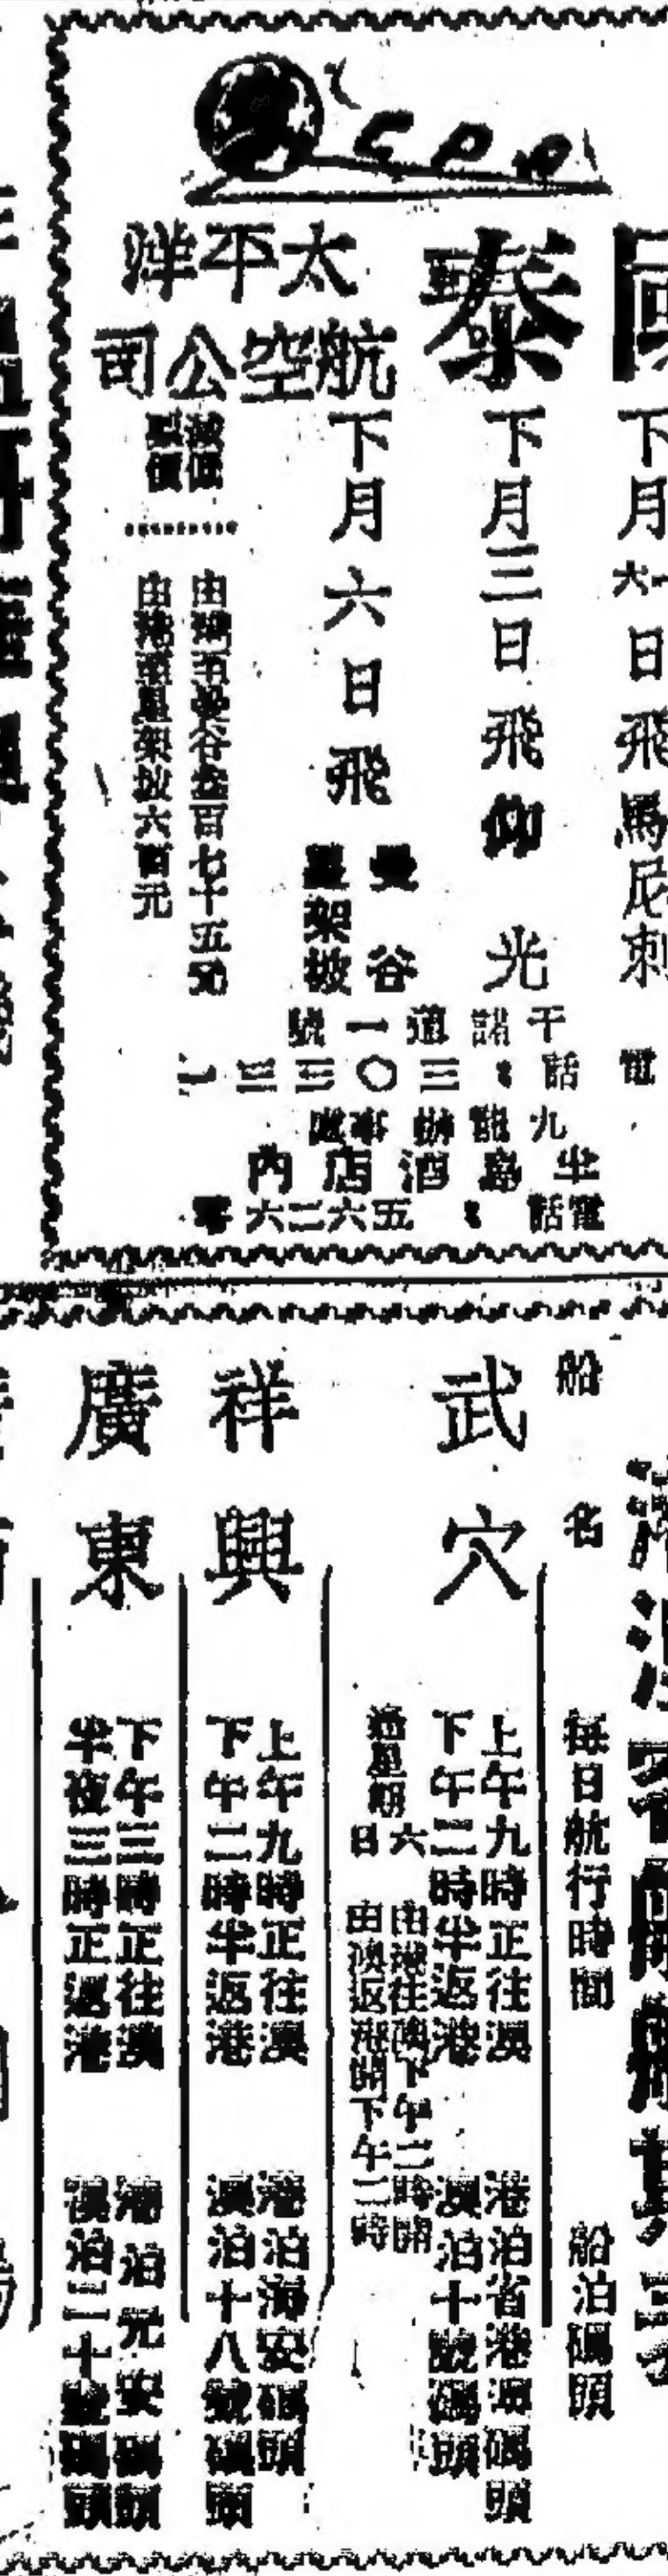 CPA
國泰
太平洋
航空公司
下月六日飛馬尼剌
下月三日飛仰光
下月六日飛
曼谷
星架坡
減低
票價
由港至曼谷叁百七十五元
由港至星架坡六百元
干諾道一號
電話:三〇三三一
九龍辦事處
半島酒店內
電話:五六二六零
船名
每日航行時間
船泊碼頭
武穴
上午九時正往澳
下午二時半返港
港泊省港澳碼頭
澳泊十號碼頭
逢星期六日
由港往澳下午二時開
由澳返港開下午二時
祥興
上午九時正往澳
下午二時半返港
港泊海安碼頭
澳泊十八號碼頭
廣東
下午三時正往澳
半夜三時正返港
港泊元安碼頭
澳泊二十號碼頭